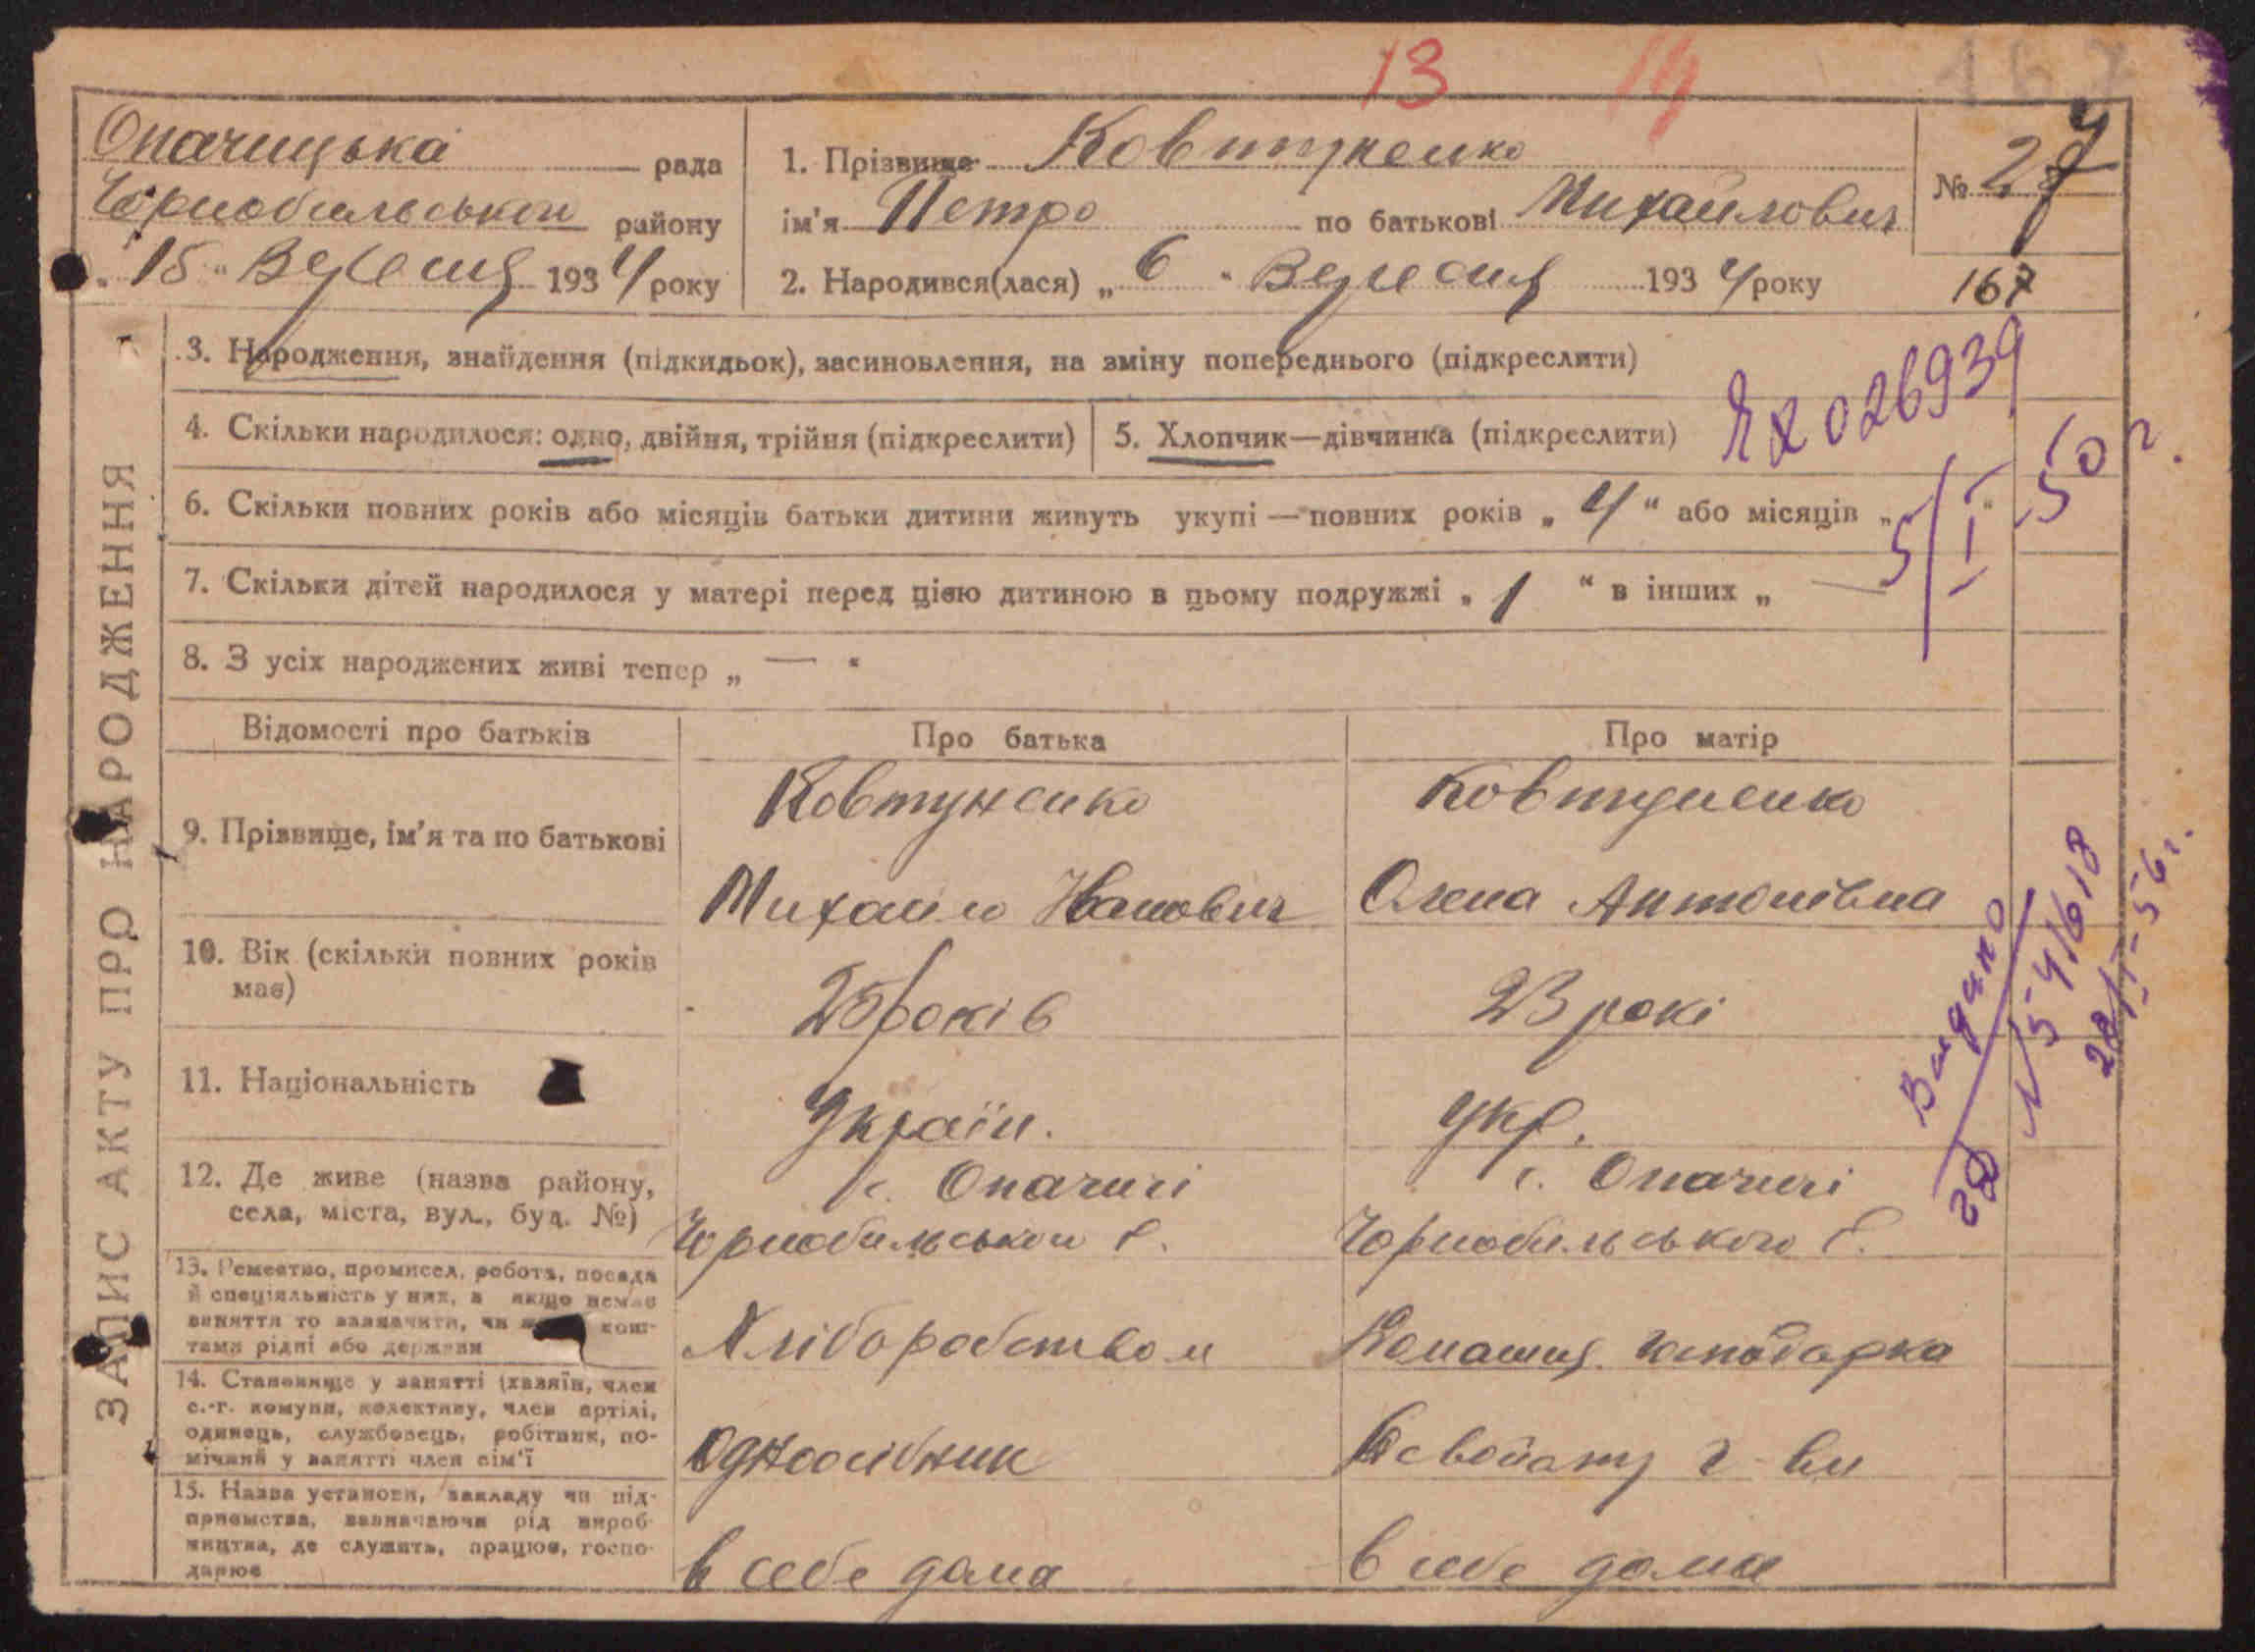 13 14 167
Опачицька рада
Чорнобильського району
„ 15 " Вересня 1934 року
1. Прізвище Ковтуненко
ім'я Петро по батькові Михайлович
2. Народився(лася) „ 6 " Вересня 1934 року
№ 27
167
3. Народження, знайдення (підкидьок), засиновлення, на зміну попереднього (підкреслити)
4. Скільки народилося: одно, двійня, трійня (підкреслити)
5. Хлопчик—дівчинка (підкреслити)
026939
5/I-50 г.
6. Скільки повних років або місяців батьки дитини живуть укупі — повних років „ 4 " або місяців „ "
7. Скільки дітей народилося у матері перед цією дитиною в цьому подружжі „ 1 " в інших „ —
8. З усіх народжених живі тепер „ — "
ЗАПИС АКТУ ПРО НАРОДЖЕННЯ
Відомості про батьків
Про батька
Про матір
9. Прізвище, ім'я та по батькові
Ковтуненко
Михайло Іванович
Ковтуненко
Олена Антонівна
10. Вік (скільки повних років
має)
25 років
23 рокі
11. Національність
Україн.
Укр.
12. Де живе (назва району,
села, міста, вул., буд. №)
с. Опачичі
Чорнобильського р.
с. Опачичі
Чорнобильського р.
13. Ремество, промисел, робота, посада
й спеціяльність у них, а якщо немає
заняття то зазначити, чи кош-
тами рідні або держави
Хліборобством
Домашня господарка
14. Становище у занятті (хазяїн, член
с.-г. комуни, колективу, член артілі,
одинець, службовець, робітник, по-
мічний у занятті член сім'ї
Одноосібник
15. Назва установи, закладу чи під-
приємства, зазначаючи рід вироб-
ництва, де служить, працює, госпо-
дарює
в себе дома
в себе дома
Выдано
28
№ 541618
28/I-56 г.